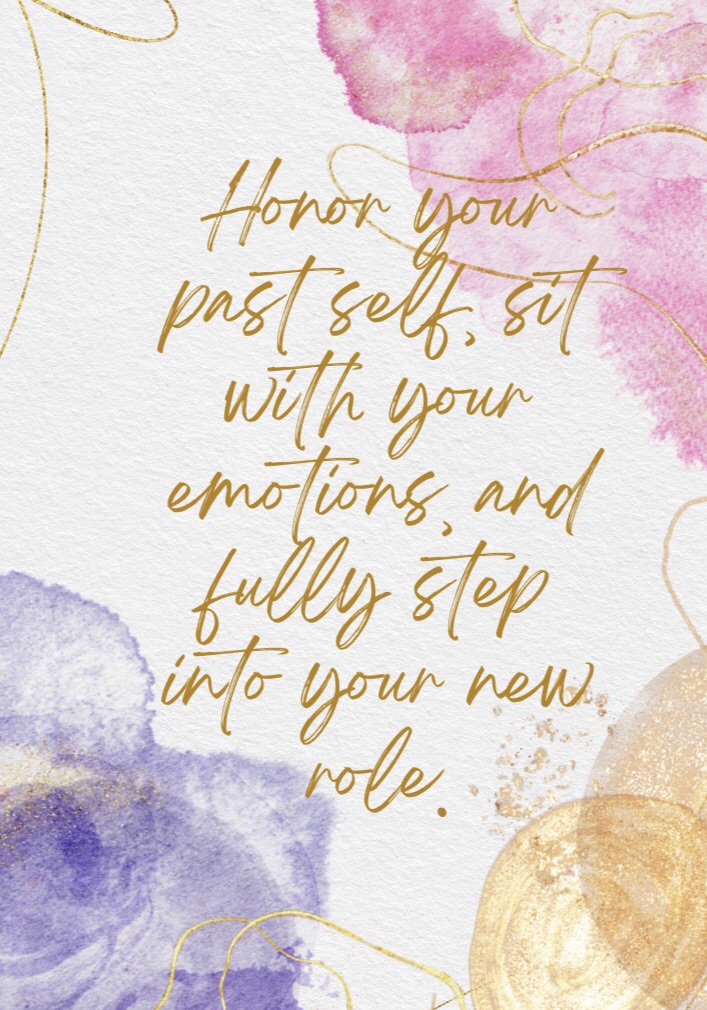 Honor your
past self, sit
with your
emotions, and
fully step
into your new
role.